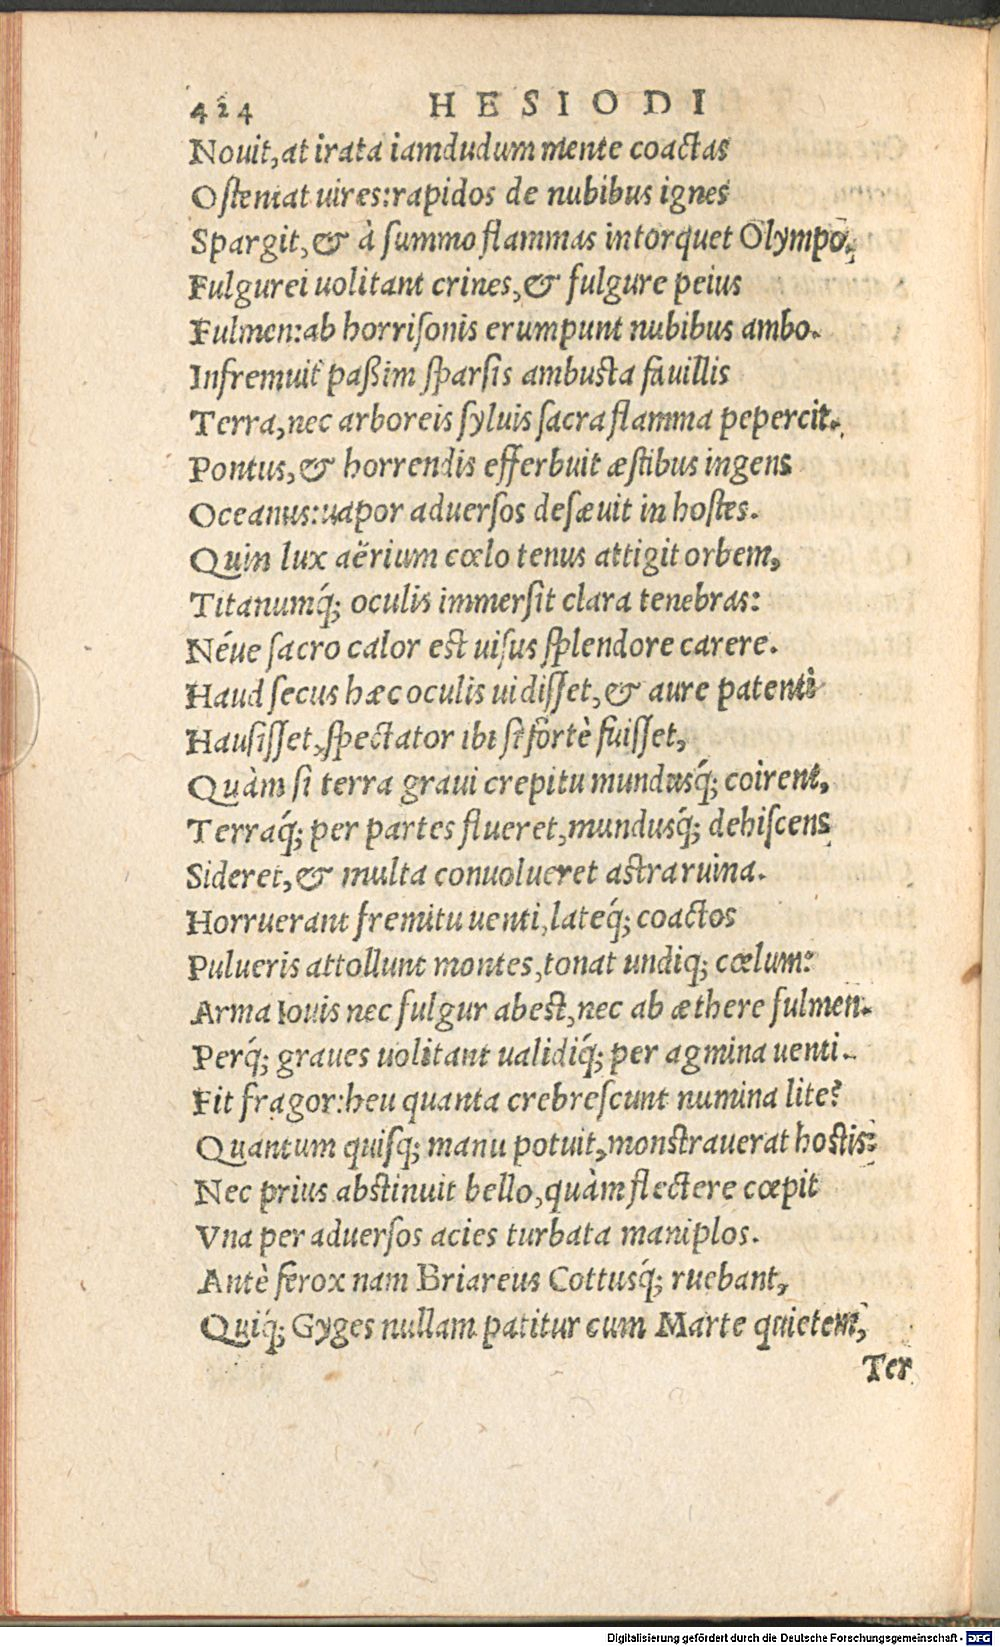 424 HESIODI
Nouit, at irata iamdudum mente coactas
Ostentat uires: rapidos de nubibus ignes
Spargit, & à summo flammas intorquet Olympo.
Fulgurei uolitant crines, & fulgure peius
Fulmen: ab horrisonis erumpunt nubibus ambo.
Infremuit paßim sparsis ambusta fauillis
Terra, nec arboreis syluis sacra flamma pepercit.
Pontus, & horrendis efferbuit æstibus ingens
Oceanus: uapor aduersos desæuit in hostes.
Quin lux aërium cœlo tenus attigit orbem,
Titanumq́; oculis immersit clara tenebras:
Néue sacro calor est uisus splendore carere.
Haud secus hæc oculis uidisset, & aure patenti
Hausisset, spectator ibi si fortè fuisset,
Quàm si terra graui crepitu mundusq́; coirent,
Terraq́; per partes flueret, mundusq́; dehiscens
Sideret, & multa conuolueret astra ruina.
Horruerant fremitu uenti, lateq́; coactos
Pulueris attollunt montes, tonat undiq; cœlum:
Arma Iouis nec fulgur abest, nec ab æthere fulmen.
Perq́; graues uolitant ualidiq́; per agmina uenti.
Fit fragor: heu quanta crebrescunt numina lite?
Quantum quisq; manu potuit, monstrauerat hostis:
Nec prius abstinuit bello, quàm flectere cœpit
Vna per aduersos acies turbata maniplos.
Antè ferox nam Briareus Cottusq́; ruebant,
Quiq́; Gyges nullam patitur cum Marte quietem,
Ter
Digitalisierung gefördert durch die Deutsche Forschungsgemeinschaft - DFG